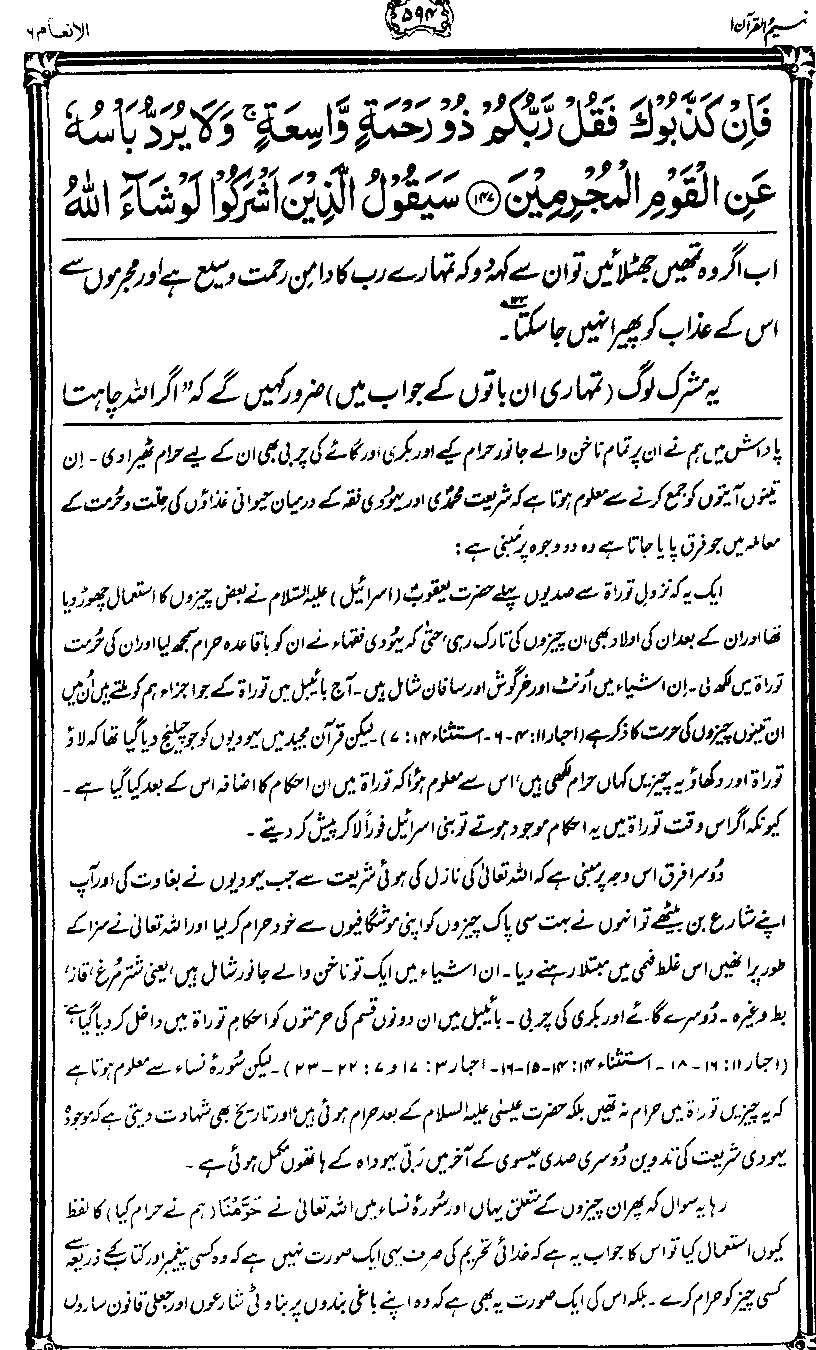 تفہیم القرآن ۱
۵۹۴
الانعام ۶
فَاِنْ كَذَّبُوْكَ فَقُلْ رَّبُّكُمْ ذُوْ رَحْمَةٍ وَّاسِعَةٍ ۚ وَلَا يُرَدُّ بَاْسُهٗ
عَنِ الْقَوْمِ الْمُجْرِمِيْنَ ﴿۱۴۷﴾ سَيَقُوْلُ الَّذِيْنَ اَشْرَكُوْا لَوْ شَآءَ اللّٰهُ
اب اگر وہ تمھیں جھٹلائیں تو ان سے کہہ دو کہ تمہارے رب کا دامنِ رحمت وسیع ہے اور مجرموں سے
اس کے عذاب کو پھیرا نہیں جا سکتا۔
یہ مشرک لوگ (تمہاری ان باتوں کے جواب میں) ضرور کہیں گے کہ "اگر اللہ چاہتا
پاداش میں ہم نے ان پر تمام ناخن والے جانور حرام کیے اور بکری اور گائے کی چربی بھی ان کے لیے حرام ٹھیرا دی۔ اِن
تینوں آیتوں کو جمع کرنے سے معلوم ہوتا ہے کہ شریعتِ محمدیؐ اور یہودی فقہ کے درمیان حیوانی غذاؤں کی حلت و حُرمت کے
معاملہ میں جو فرق پایا جاتا ہے وہ دو وجوہ پر مبنی ہے:
ایک یہ کہ نزولِ توراۃ سے صدیوں پہلے حضرت یعقوبؑ (اسرائیل) علیہ السلام نے بعض چیزوں کا استعمال چھوڑ دیا
تھا اور ان کے بعد ان کی اولاد بھی ان چیزوں کی تارک رہی، حتٰی کہ یہودی فقہاء نے ان کو باقاعدہ حرام سمجھ لیا اور ان کی حُرمت
توراۃ میں لکھ لی۔ اِن اشیاء میں اُونٹ اور خرگوش اور سافان شامل ہیں۔ آج بائیبل میں توراۃ کے جو اجزاء ہم کو ملتے ہیں اُن میں
ان تینوں چیزوں کی حرمت کا ذکر ہے (احبار ۱۱: ۴-۶۔ استثناء ۱۴: ۷)۔ لیکن قرآن مجید میں یہودیوں کو جو چیلنج دیا گیا تھا کہ لاؤ
توراۃ اور دکھاؤ یہ چیزیں کہاں حرام لکھی ہیں، اس سے معلوم ہوا کہ توراۃ میں ان احکام کا اضافہ اس کے بعد کیا گیا ہے۔
کیونکہ اگر اس وقت توراۃ میں یہ احکام موجود ہوتے تو بنی اسرائیل فوراً لا کر پیش کر دیتے۔
دُوسرا فرق اس وجہ پر مبنی ہے کہ اللہ تعالیٰ کی نازل کی ہوئی شریعت سے جب یہودیوں نے بغاوت کی اور آپ
اپنے شارع بن بیٹھے تو انہوں نے بہت سی پاک چیزوں کو اپنی موشگافیوں سے خود حرام کر لیا اور اللہ تعالیٰ نے سزا کے
طور پر انھیں اس غلط فہمی میں مبتلا رہنے دیا۔ ان اشیاء میں ایک تو ناخن والے جانور شامل ہیں، یعنی شترمرغ، قاز،
بط وغیرہ۔ دُوسرے گائے اور بکری کی چربی۔ بائیبل میں ان دونوں قسم کی حرمتوں کو احکامِ توراۃ میں داخل کر دیا گیا ہے
(احبار ۱۱: ۱۶-۱۸۔ استثناء ۱۴: ۱۴-۱۵-۱۶۔ احبار ۳: ۱۷ و ۷: ۲۲-۲۳)۔ لیکن سُورۂ نساء سے معلوم ہوتا ہے
کہ یہ چیزیں توراۃ میں حرام نہ تھیں بلکہ حضرت عیسیٰ علیہ السلام کے بعد حرام ہوئی ہیں، اور تاریخ بھی شہادت دیتی ہے کہ موجودہ
یہودی شریعت کی تدوین دُوسری صدی عیسوی کے آخر میں ربّی یہوداہ کے ہاتھوں مکمل ہوئی ہے۔
رہا یہ سوال کہ پھر ان چیزوں کے متعلق یہاں اور سُورۂ نساء میں اللہ تعالیٰ نے حَرَّمْنَا (ہم نے حرام کیا) کا لفظ
کیوں استعمال کیا تو اس کا جواب یہ ہے کہ خدائی تحریم کی صرف یہی ایک صورت نہیں ہے کہ وہ کسی پیغمبر اور کتاب کے ذریعہ سے
کسی چیز کو حرام کرے۔ بلکہ اس کی ایک صورت یہ بھی ہے کہ وہ اپنے باغی بندوں پر بناوٹی شارعوں اور جعلی قانون سازوں